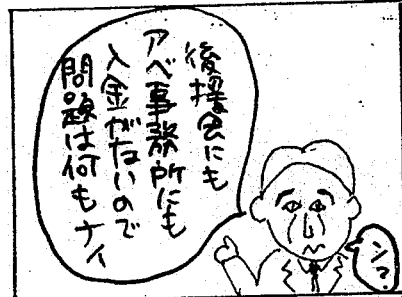 後援会にも
アベ事務所にも
入金がないので
問題は何もナイ
ン?